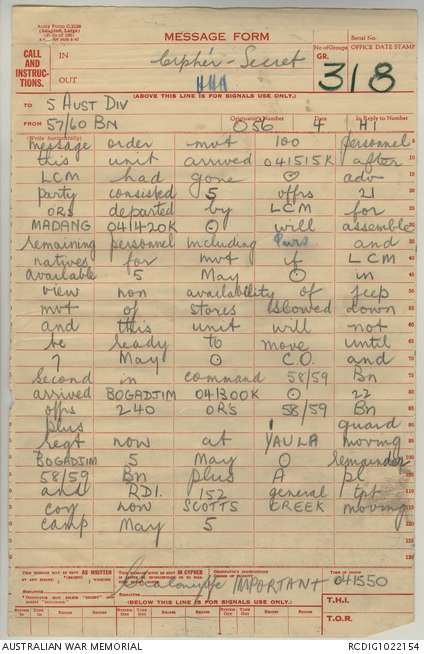 Army Form C.2128
MESSAGE FORM
Serial No.
CALL AND INSTRUCTIONS.
IN
Cypher - Secret
No. of Groups
GR.
OFFICE DATE STAMP
OUT
318
(ABOVE THIS LINE IS FOR SIGNALS USE ONLY.)
TO 5 AUST DIV
FROM 57/60 BN
Originator's Number
056
4
In Reply to Number
H1
(Write horizontally)
message order mvt 100 personnel
this unit arrived 041515K after
LCM had gone ⊙ adv
party consisted 5 offrs 21
ORs departed by LCM for
MADANG 041420K ⊙ will assemble
remaining personnel including and
natives for mvt if LCM
available 5 May ⊙ in
view non availability of jeep
mvt of stores slowed down
and this unit will not
be ready to move until
7 May ⊙ C.O. and
second in command 58/59 Bn
arrived BOGADJIM 041300K ⊙ 22
offrs 240 ORs 58/59 Bn
plus guard
regt now at YAULA moving
BOGADJIM 5 May ⊙ remainder
58/59 Bn plus A pl
and RD1. 152 general tpt
coy now SCOTTS CREEK moving
camp May 5
THIS MESSAGE MAY BE SENT AS WRITTEN
IF IN CYPHER
IMPORTANT
041550
(BELOW THIS LINE IS FOR SIGNALS USE ONLY.)
T.H.I.
T.O.R.
AUSTRALIAN WAR MEMORIAL
RCDIG1022154